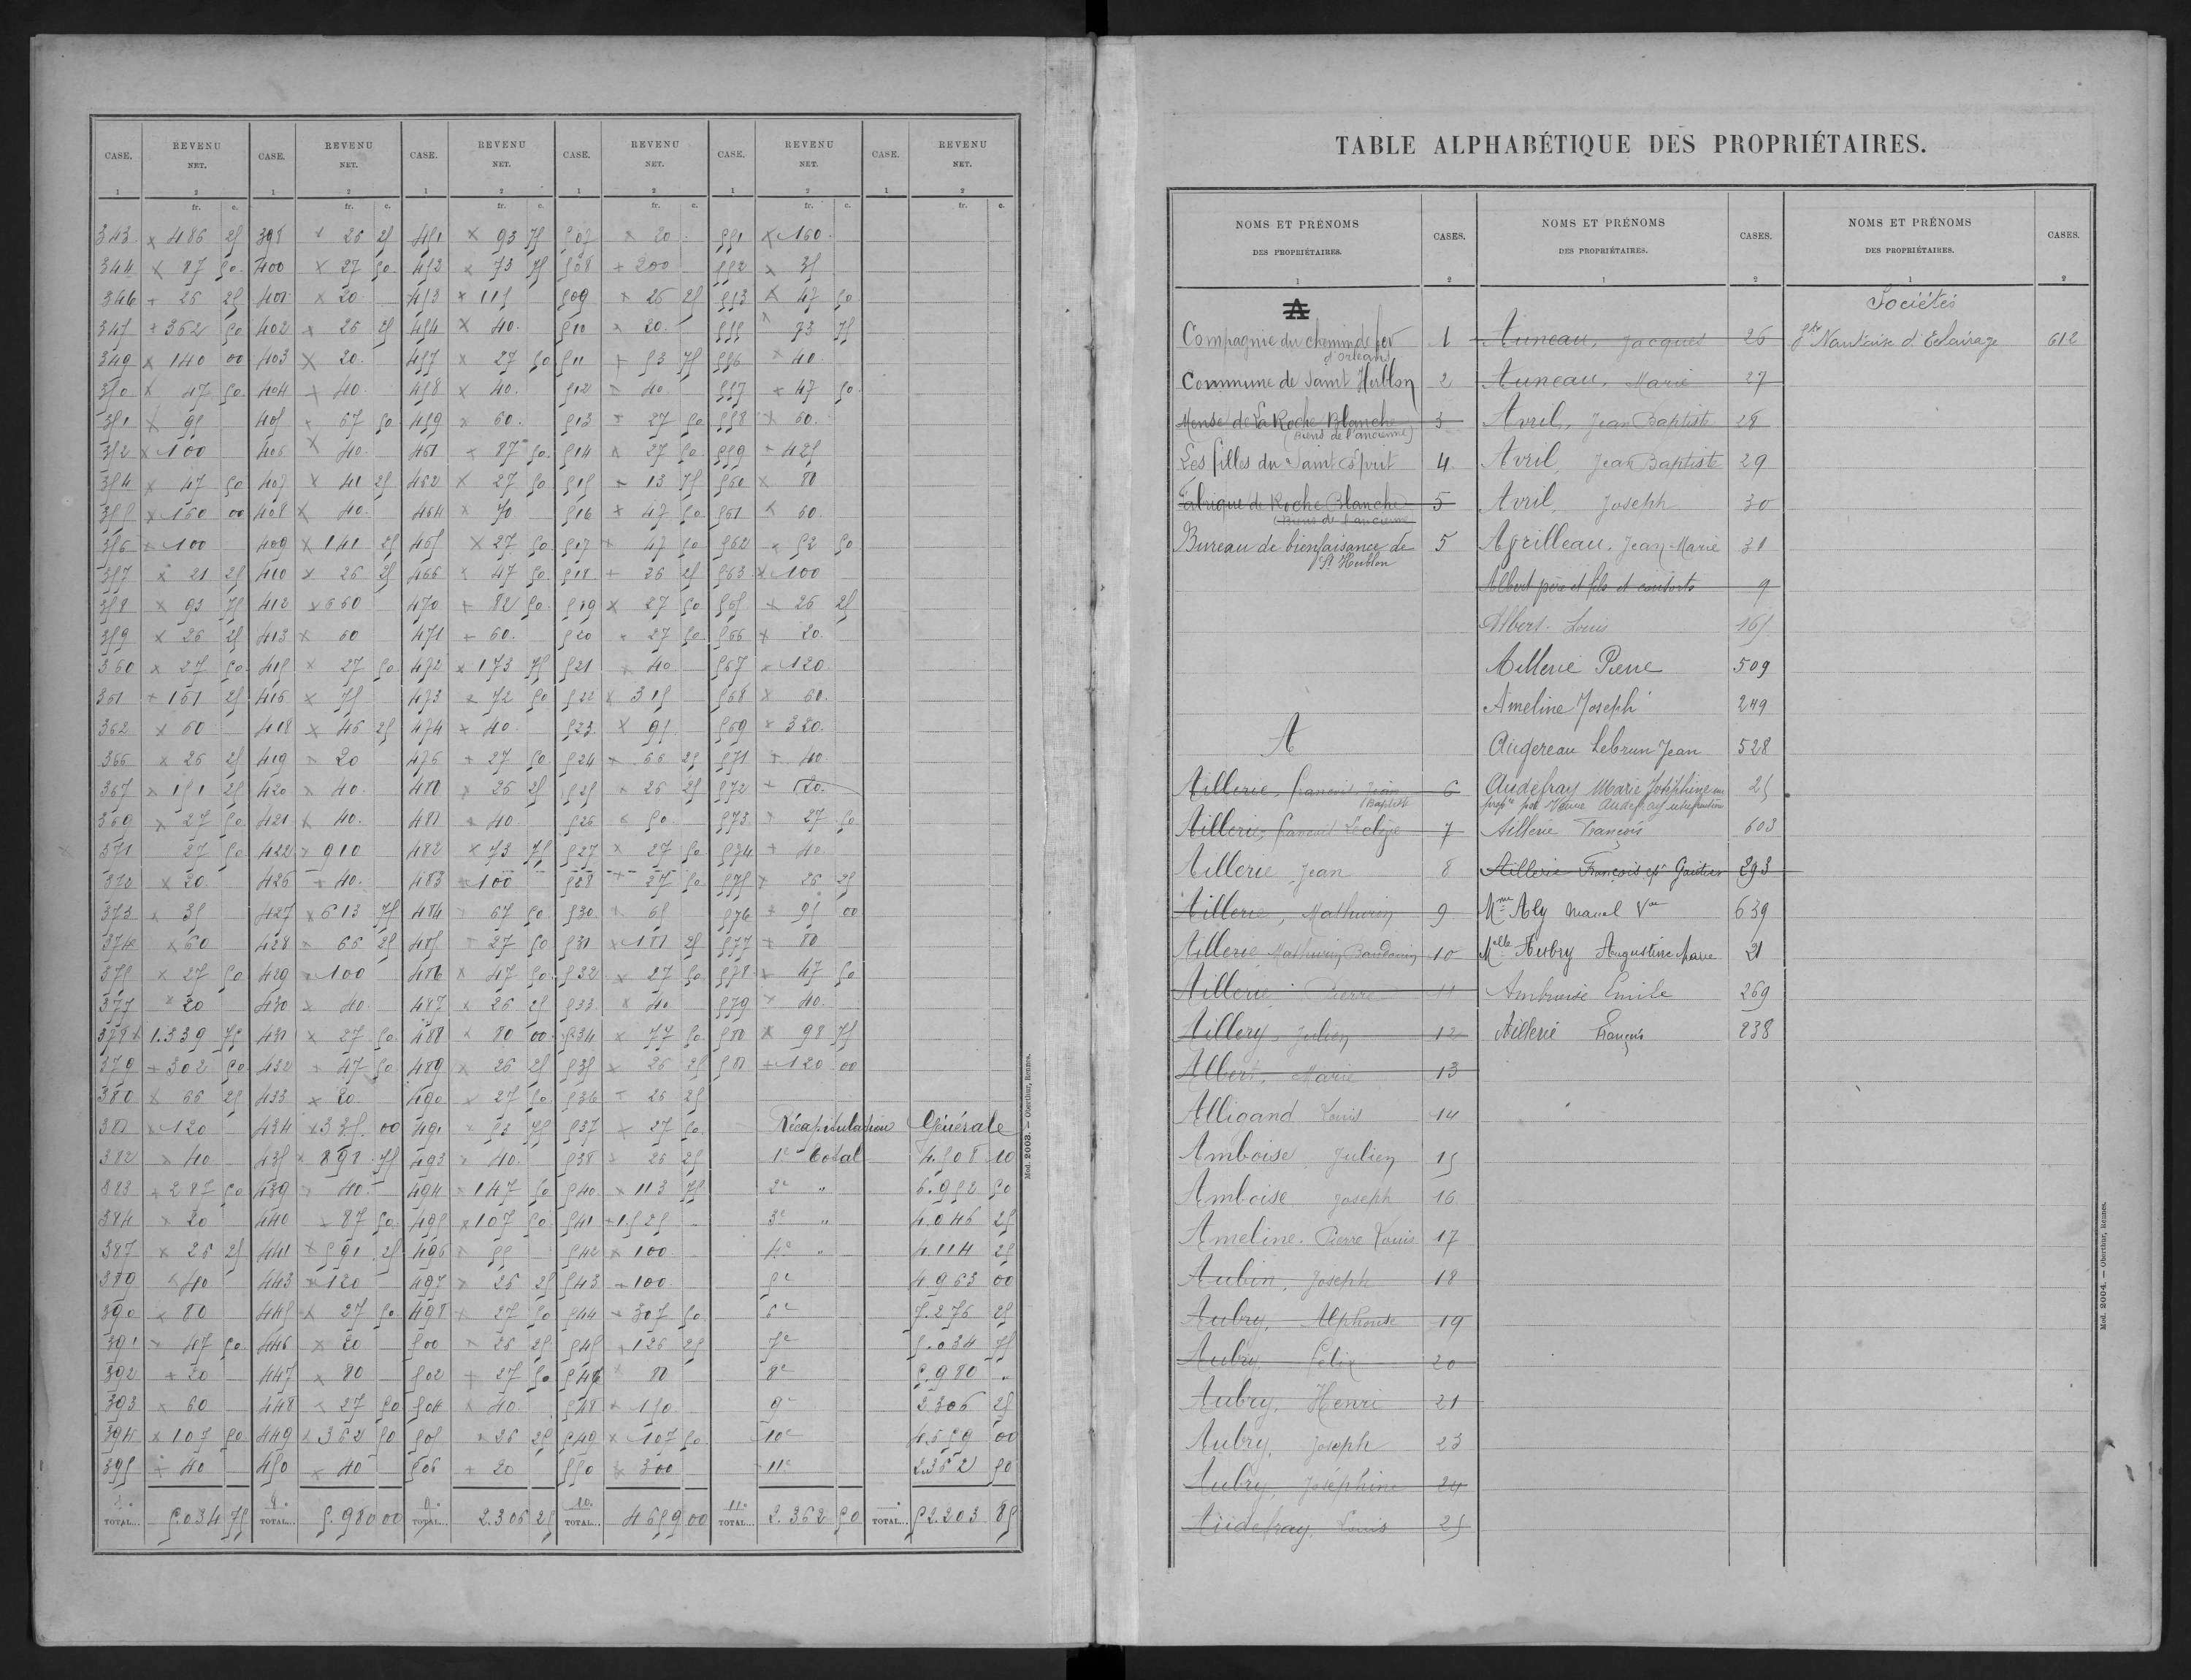 CASE. REVENU NET. CASE. REVENU NET. CASE. REVENU NET. CASE. REVENU NET. CASE. REVENU NET. CASE. REVENU NET.
1 2 1 2 1 2 1 2 1 2 1 2
fr. c. fr. c. fr. c. fr. c. fr. c. fr. c.
343 x 486 25 398 x 26 25 451 x 93 75 507 x 20 551 x 160
344 x 87 50 400 x 27 50 452 x 73 75 508 + 200 552 x 35
346 + 26 25 401 x 20 453 x 115 509 x 26 25 553 x 47 50
347 + 362 50 402 x 26 25 454 x 40 510 x 20 555 x 73 75
349 x 140 00 403 x 20 457 x 27 50 511 + 53 75 556 x 40
350 x 47 50 404 x 40 458 x 40 512 x 40 557 x 47 50
351 x 95 405 x 67 50 459 x 60 513 x 27 50 558 x 60
352 x 100 406 x 40 461 x 87 50 514 x 27 50 559 + 425
354 x 47 50 407 x 41 25 462 x 27 50 515 + 13 75 560 x 80
355 x 160 00 408 x 40 464 x 70 516 + 47 50 561 x 60
356 x 100 409 x 141 25 465 x 27 50 517 + 47 50 562 x 52 50
357 x 21 25 410 x 26 25 466 x 47 50 518 + 36 25 563 x 100
358 x 93 75 412 x 660 470 + 82 50 519 x 27 50 565 x 26 25
359 x 26 25 413 x 60 471 + 60 520 x 27 50 566 x 20
360 x 27 50 415 x 27 50 472 x 173 75 521 x 40 567 x 120
361 + 161 25 416 x 75 473 x 72 50 522 x 315 568 x 60
362 x 60 418 x 46 25 474 + 40 523 x 95 569 x 320
366 x 26 25 419 x 20 476 + 27 50 524 + 66 25 571 + 40
367 x 151 25 420 x 40 480 x 26 25 525 x 26 25 572 + 20
369 x 27 50 421 x 40 481 x 40 526 x 50 573 x 27 50
371 27 50 422 x 910 482 x 73 75 527 x 27 50 574 + 40
372 x 20 426 + 40 483 x 100 528 + 27 50 575 x 26 25
373 x 35 427 x 613 75 484 + 67 50 530 x 65 576 + 95 00
374 x 60 428 x 66 25 485 + 27 50 531 x 181 25 577 + 80
375 x 27 50 429 x 100 486 x 47 50 532 x 27 50 578 x 47 50
377 x 20 430 x 40 487 x 26 25 533 x 40 579 x 40
378 x 1.339 75 431 x 27 50 488 x 80 00 534 x 77 50 580 x 98 75
379 + 302 50 432 + 47 50 489 x 26 25 535 x 26 25 581 + 120 00
380 x 66 25 433 x 20 490 x 27 50 536 + 26 25
381 x 120 434 x 335 00 491 x 53 75 537 x 27 50 Récapitulation Générale
382 x 40 435 x 898 75 493 x 40 538 x 26 25 1e Total 4.508 10
383 + 287 50 439 x 40 494 x 147 50 540 x 113 75 2e " 6.952 50
384 x 20 440 x 87 50 495 x 107 50 541 + 1.525 3e " 4.046 25
387 x 26 25 441 x 591 25 496 x 55 542 x 100 4e " 4.114 25
389 x 40 443 x 120 497 x 26 25 543 x 100 5e 4.963 00
390 x 80 445 x 27 50 498 x 27 50 544 x 307 50 6e 7.276 25
391 x 47 50 446 x 20 500 x 26 25 545 x 126 25 7e 5.034 75
392 + 20 447 x 80 502 + 27 50 546 x 80 8e 5.980 "
393 x 60 448 x 27 50 504 x 40 548 x 150 9e 2.306 25
394 x 107 50 449 x 362 50 505 x 26 25 549 x 107 50 10e 4.659 00
395 + 40 450 x 40 506 + 20 550 x 300 11e 2.362 50
TOTAL... 5.034 75 8e TOTAL... 5.980 00 9e TOTAL... 2.306 25 10e TOTAL... 4659 00 11e TOTAL... 2.362 50 TOTAL... 52.203 85
Mod. 2003. — Oberthur, Rennes.
TABLE ALPHABÉTIQUE DES PROPRIÉTAIRES.
NOMS ET PRÉNOMS DES PROPRIÉTAIRES. CASES. NOMS ET PRÉNOMS DES PROPRIÉTAIRES. CASES. NOMS ET PRÉNOMS DES PROPRIÉTAIRES. CASES.
1 2 1 2 1 2
A
Compagnie du chemin de fer 1
d'orléans
Commune de Saint Herblon 2
Mense de La Roche Blanche 3
(Biens de l'ancienne)
Les filles du Saint Esprit 4
Fabrique de Roche Blanche 5
(Biens de l'ancienne
Bureau de bienfaisance de 5
St Herblon
A
Aillerie, francois Jean 6
Baptiste
Aillerie, francois 7
Aillerie Jean 8
Aillerie, Mathurin 9
Aillerie Mathurin Baudouin 10
Aillerie Pierre 11
Aillery, Julien 12
Albert, Marie 13
Alligand Louis 14
Amboise Julien 15
Amboise Joseph 16
Ameline. Pierre Louis 17
Aubin, Joseph 18
Aubry, Alphonse 19
Aubry, Félix 20
Aubry, Henri 21
Aubry, Joseph 23
Aubry, Joséphine 24
Audefray, Louis 25
Auneau, Jacques 26
Auneau, Marie 27
Avril, Jean Baptiste 28
Avril, Jean Baptiste 29
Avril, Joseph 30
Agrilleau, Jean Marie 31
Albert père et fils et consorts 9
Albert Louis 165
Aillerie Pierre 509
Ameline Joseph 249
Augereau Lebrun Jean 528
Audefray Marie Joséphine 25
Veuve Audefray
Aillerie François 603
Aillerie François ep. Gautier 293
Mme Aly Marcel Vve 639
Melle Aubry Augustine Marie 21
Ambroise Emile 269
Aillerie François 238
Sociétés
Sté Nantaise d'Eclairage 612
Mod. 2004. — Oberthur, Rennes.